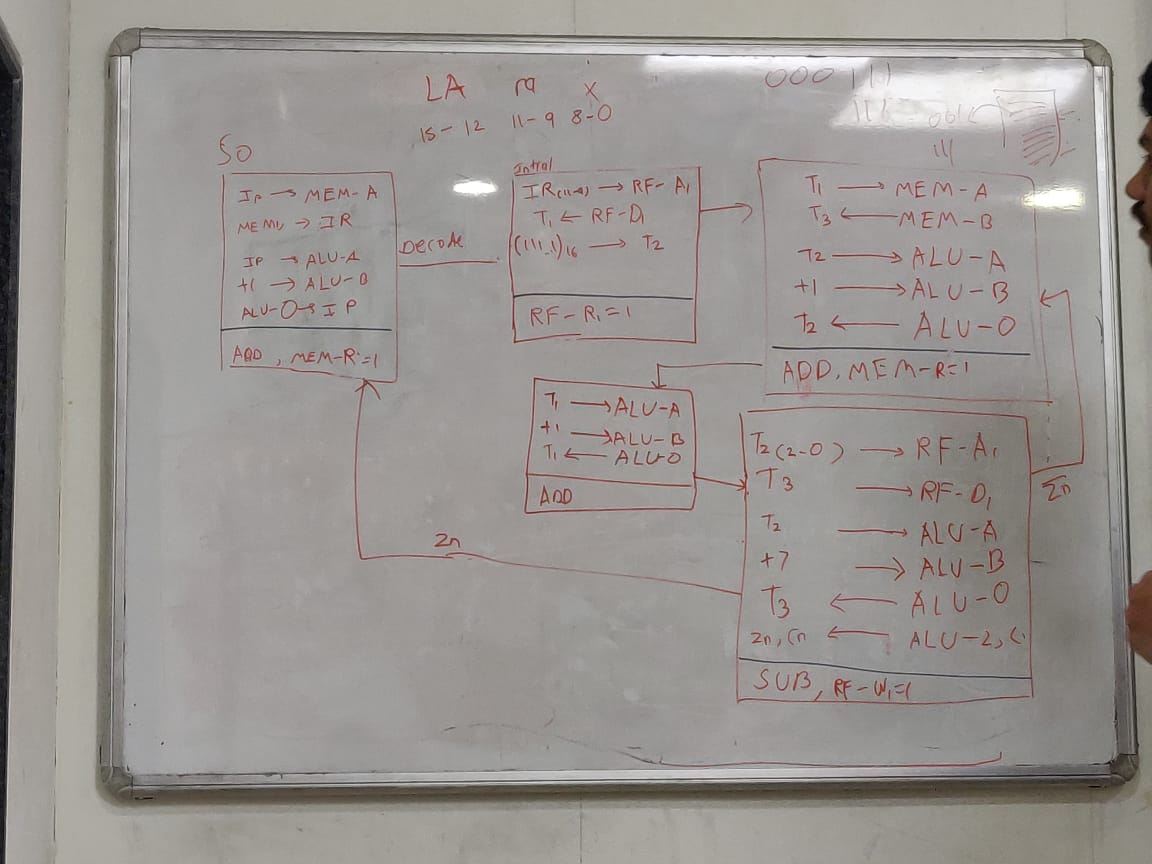 LA ra x
15-12 11-9 8-0
000 111
111
111
S0
IP → MEM-A
→ IR
IP → ALU-A
+1 → ALU-B
ALU-O → IP
ADD, MEM-R=1
Decode
→ RF-A1
T1 ← RF-D1
→ T2
RF-R1=1
T1 → MEM-A
T3 ← MEM-B
T2 → ALU-A
+1 → ALU-B
T2 ← ALU-O
ADD, MEM-R=1
T1 → ALU-A
+1 → ALU-B
T1 ← ALU-O
ADD
T2(2-0) → RF-A1
T3 → RF-D1
T2 → ALU-A
+7 → ALU-B
T3 ← ALU-O
Zn, Cn ← ALU-Z, C
SUB, RF-W1=1
Zn
Zn